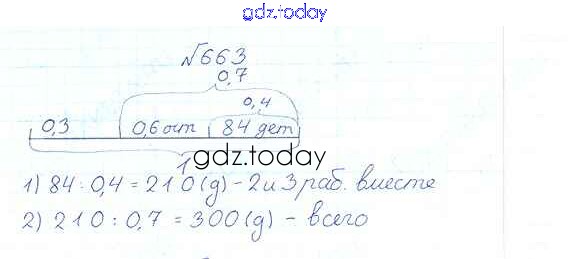 gdz.today
№663
0,7
0,4
0,3 0,6 ост 84 дет
1
gdz.today
1) 84 : 0,4 = 210 (д) - 2 и 3 раб. вместе
2) 210 : 0,7 = 300 (д) - всего